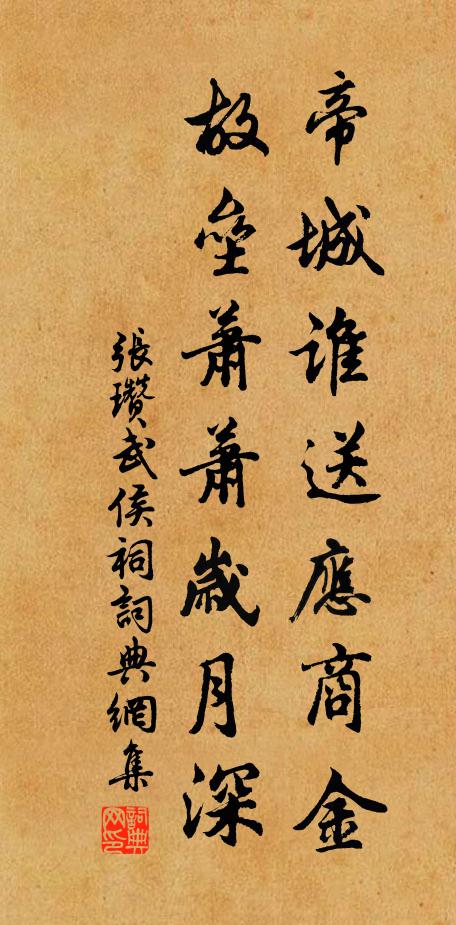 帝城誰送應商金
故壘蕭蕭歲月深
張瓚武侯祠詞典網集
詞典网印